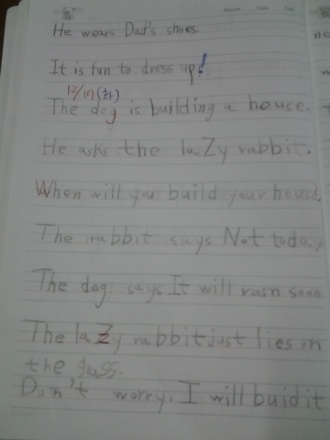 He wears Dad's shoes.
It is fun to dress up!
12/17(화)
The dog is building a house.
He asks the laZy rabbit.
When will you build your house
The rabbit says Not today
The dog says It will rain soon
The laZy rabbit just lies on
the grass.
Don't worry. I will buid it